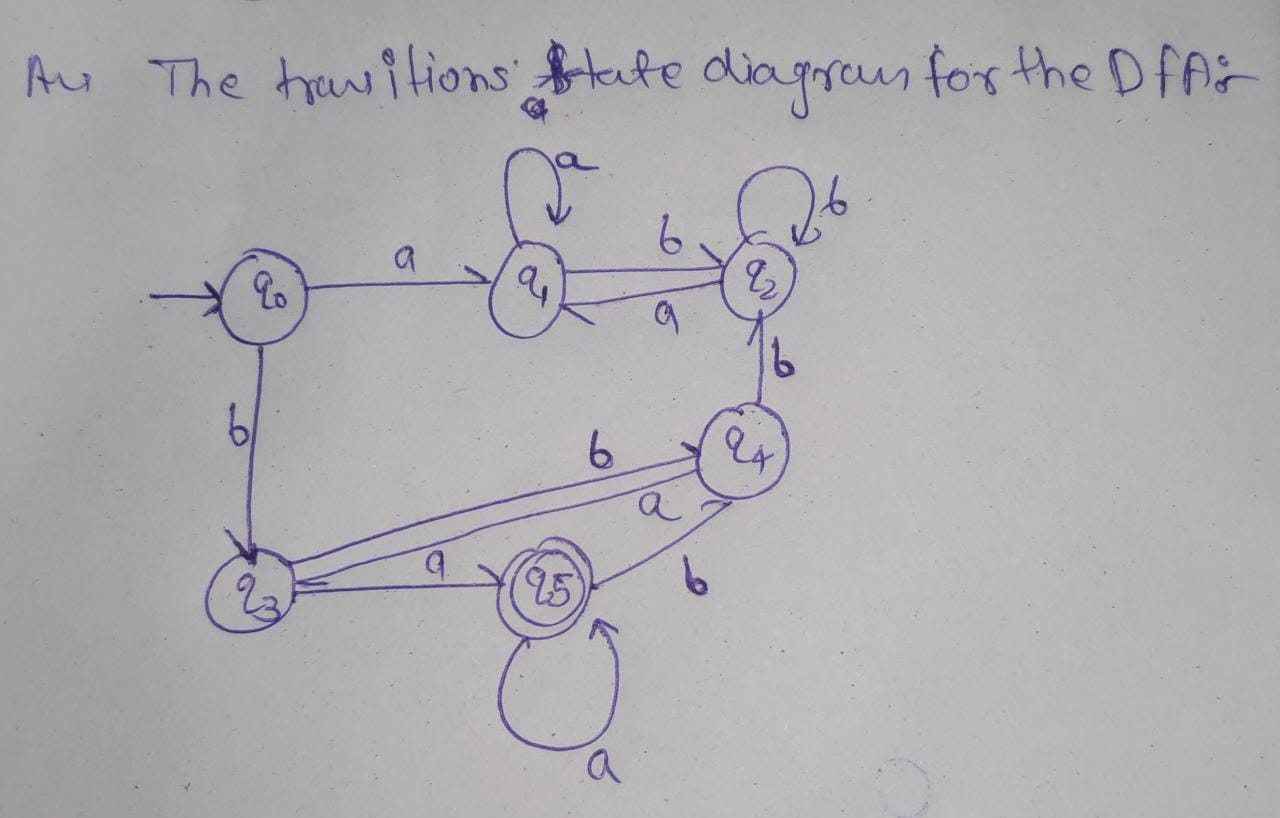 Ans The transitions State diagram for the DfA:-
a
b
a
b
q0
q1
q2
a
b
b
b
q4
a
a
q3
q5
b
a